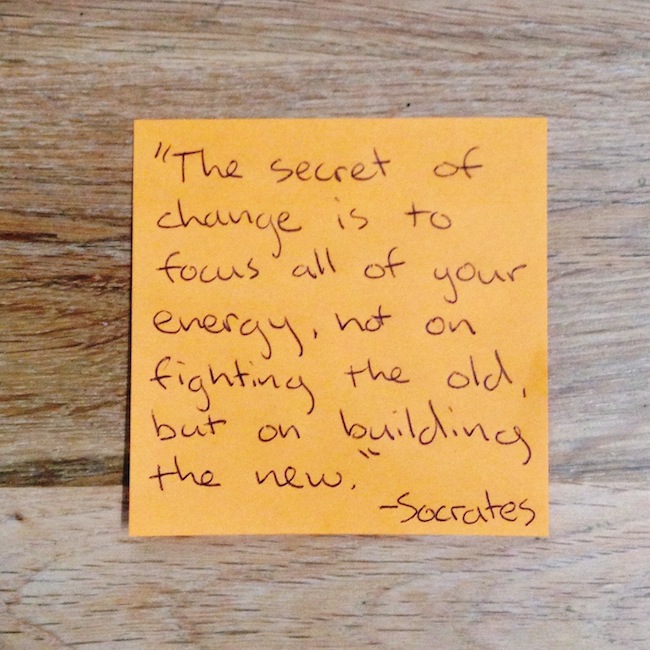 "The secret of
change is to
focus all of your
energy, not on
fighting the old,
but on building
the new."
-Socrates